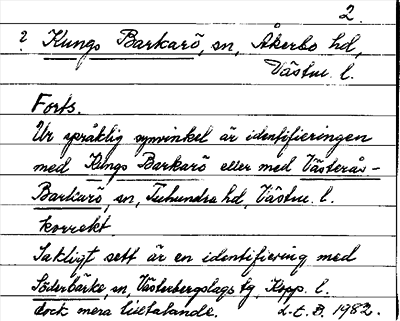 2.
? Kungs Barkarö, sn, Åkerbo hd,
Västm. l.
Forts.
Ur språklig synvinkel är identifieringen
med Kungs Barkarö eller med Västerås-
Barkarö, sn, Tuhundra hd, Västm. l.
korrekt.
Sakligt sett är en identifiering med
Söderbärke, sn, Västerbergslags tg, Kopp. l.
dock mera tilltalande. L-t. B. 1982.